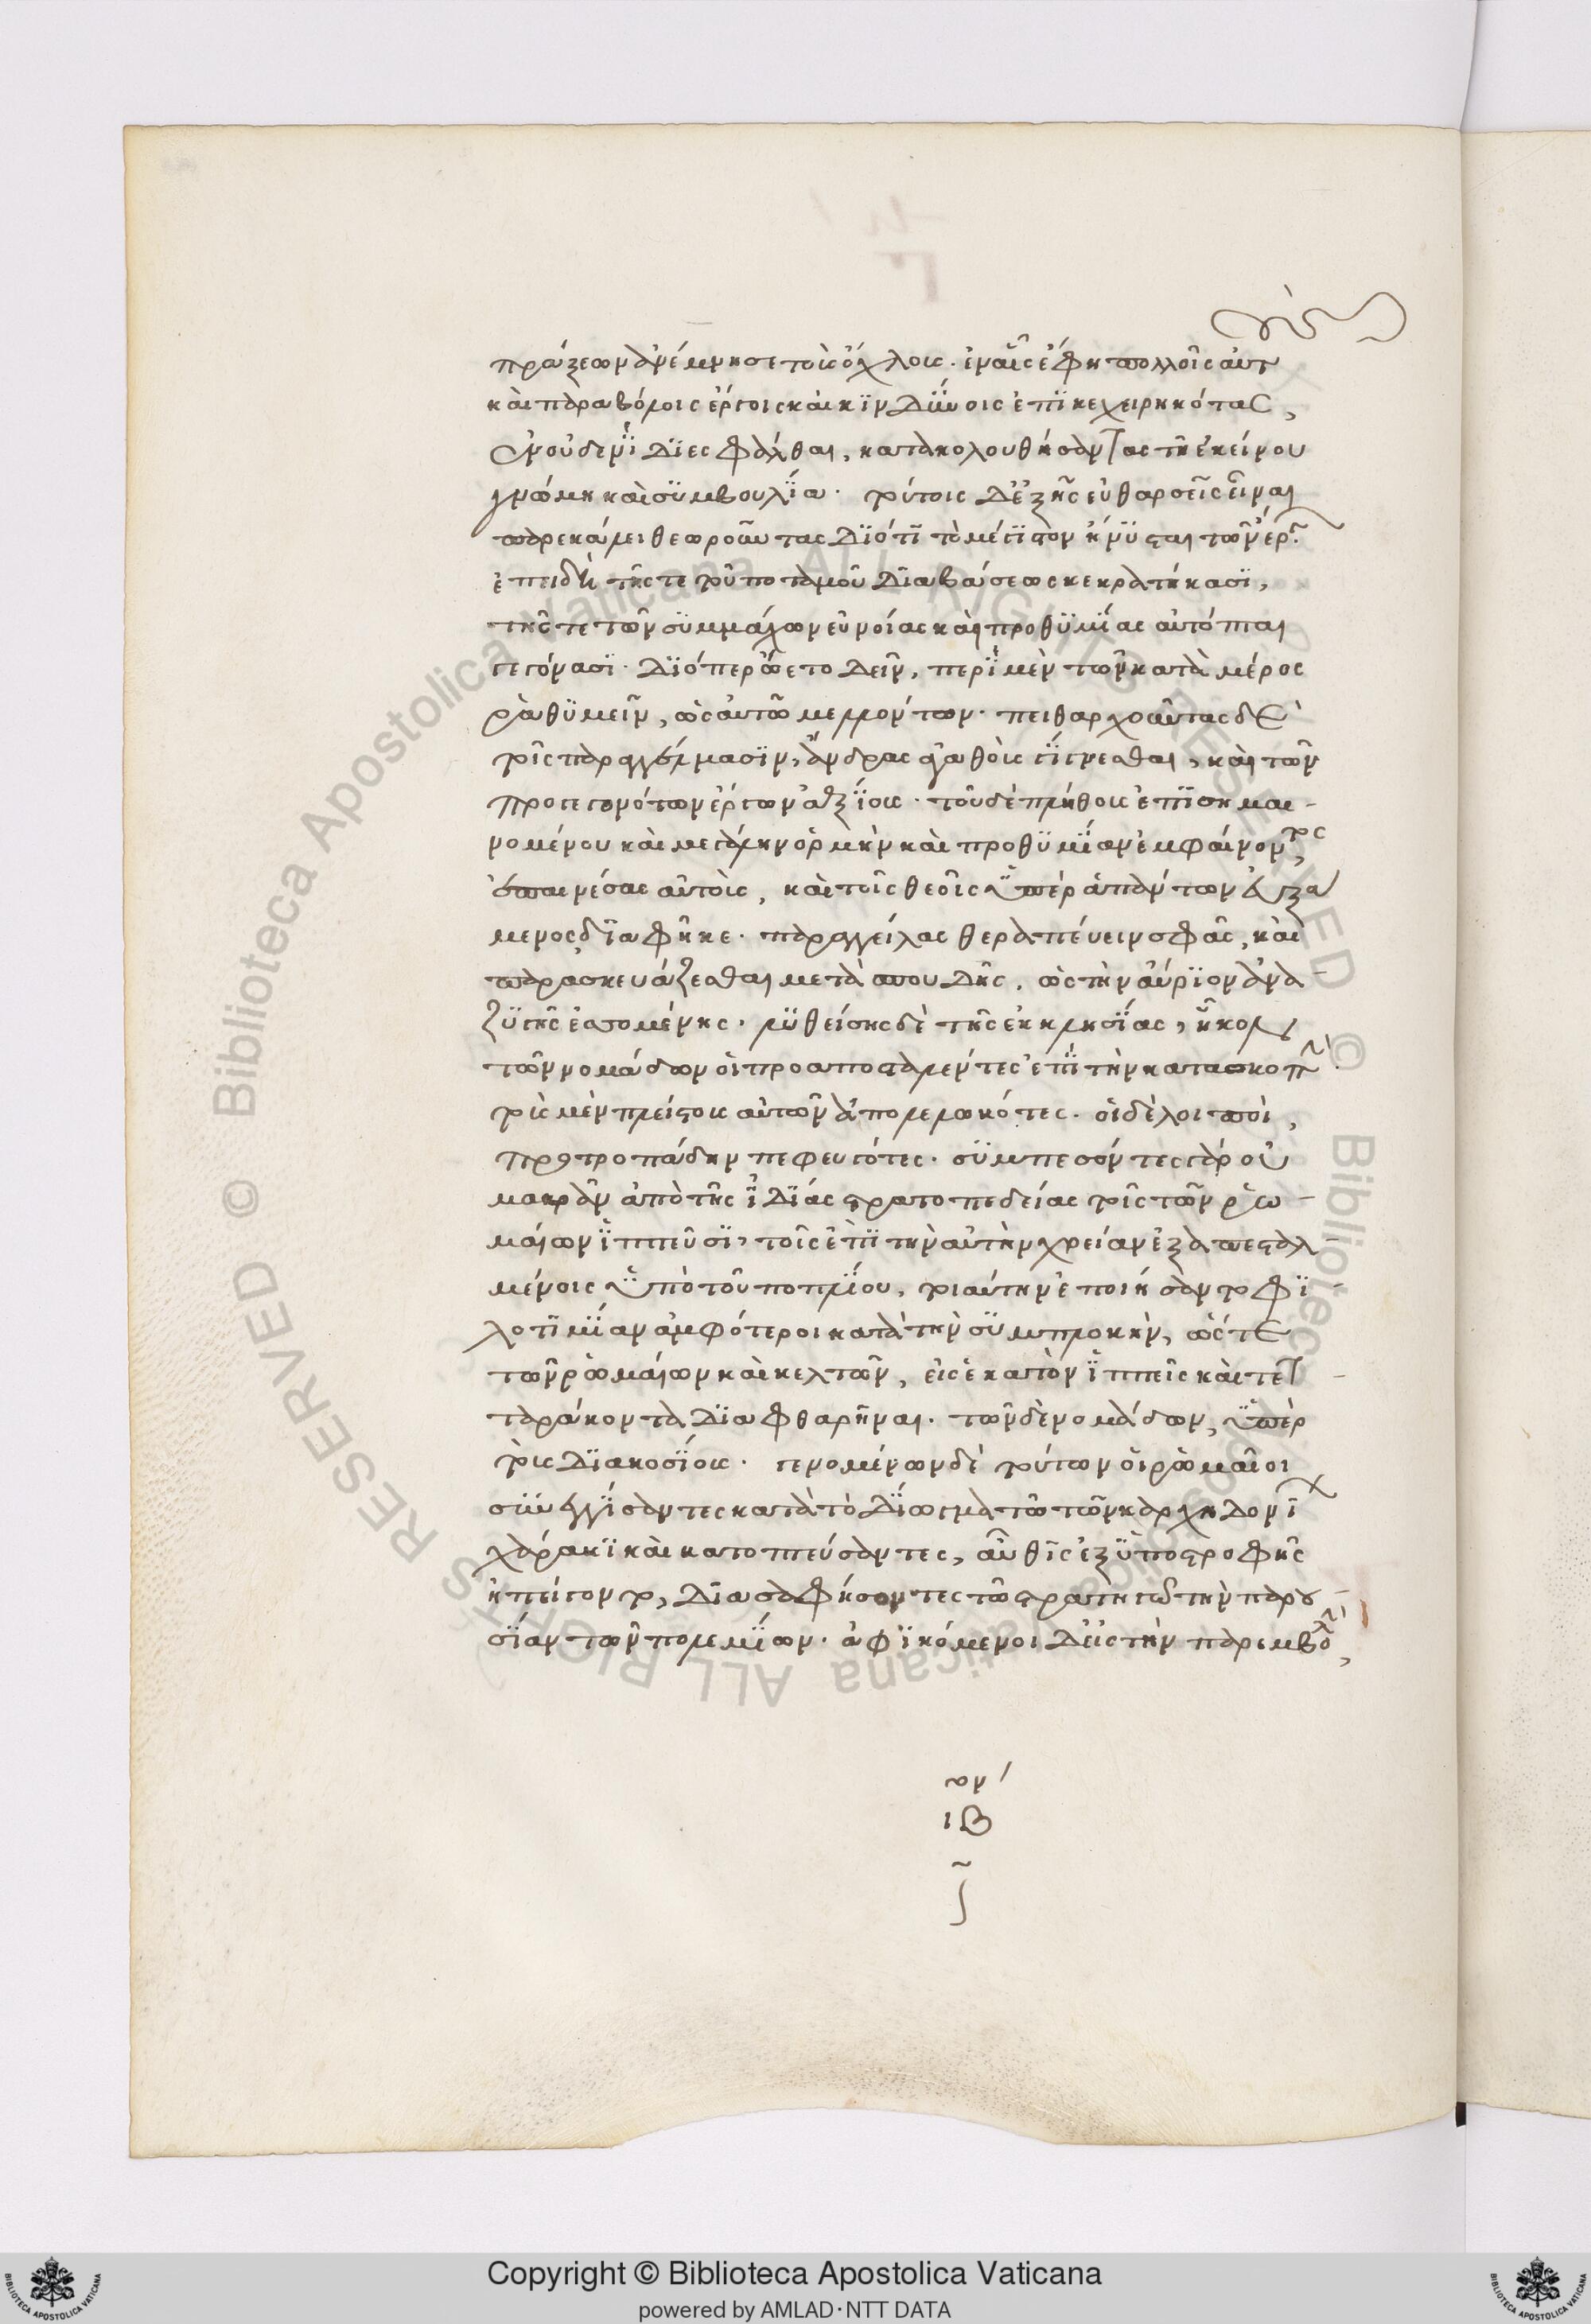 πράξεων ἀνέμνησε τοὺς ὄχλους· ἐν αἷς ἔφη πολλοῖς αὐτ
καὶ παραβόλοις ἔργοις καὶ κινδύνοις ἐπικεχειρηκότας,
ἐν οὐδενὶ διεσφάλθαι, κατακολουθήσαντας τῆ ἐκείνου
γνώμη καὶ συμβουλία· τούτοις δ' ἑξῆς εὐθαρσεῖς εἶναι
παρεκάλει θεωροῦντας διότι τὸ μέγιστον ἤνυσται τῶν ἔργ
ἐπειδὴ τῆς τε τοῦ ποταμοῦ διαβάσεως κεκρατήκασι,
τῆς τε τῶν συμμάχων εὐνοίας καὶ προθυμίας αὐτόπται
γεγόνασι· διόπερ ὤετο δεῖν, περὶ μὲν τῶν κατὰ μέρος
ῥαθυμεῖν, ὡς αὐτῶ μελλόντων· πειθαρχοῦντας δὲ
τοῖς παραγγέλμασιν, ἄνδρας ἀγαθοὺς γίγνεσθαι, καὶ τῶν
προγεγονότων ἔργων ἀξίους· τοῦ δὲ πλήθους ἐπισημαι-
νομένου καὶ μεγάλην ὁρμὴν καὶ προθυμίαν ἐμφαίνοντος,
ἐπαινέσας αὐτοὺς, καὶ τοῖς θεοῖς ὑπὲρ ἁπάντων εὐξά
μενος διαφῆκε· παραγγείλας θεραπεύειν σφᾶς, καὶ
παρασκευάζεσθαι μετὰ σπουδῆς, ὡς τὴν αὔριον ἀνα-
ζυγῆς ἐσομένης· λυθείσης δὲ τῆς ἐκκλησίας, ἧκον
τῶν νομάδων οἱ προαποσταλέντες ἐπὶ τὴν κατασκοπὴν
τοὺς μὲν πλείστους αὐτῶν ἀπολελωκότες· οἱ δὲ λοιποὶ,
προτροπάδην πεφευγότες· συμπεσόντες γὰρ οὐ
μακρὰν ἀπὸ τῆς ἰδίας στρατοπεδείας τοῖς τῶν ῥω-
μαίων ἱππεῦσι, τοῖς ἐπὶ τὴν αὐτὴν χρείαν ἐξαπεσταλ-
μένοις ὑπὸ τοῦ ποπλίου, τοιαύτην ἐποιήσαντο φι-
λοτιμίαν ἀμφότεροι κατὰ τὴν συμπλοκὴν, ὥστε
τῶν ῥωμαίων καὶ κελτῶν, εἰς ἑκατὸν ἱππεῖς καὶ τετ-
ταράκοντα διαφθαρῆναι· τῶν δὲ νομάδων, ὑπὲρ
τοὺς διακοσίους· γενομένων δὲ τούτων οἱ ῥωμαῖοι
συνεγγίσαντες κατὰ τὸ δίωγμα τῶ τῶν καρχηδονίων
χάρακι καὶ κατοπτεύσαντες, αὖθις ἐξ ὑποστροφῆς
ἠπείγοντο, διασαφήσοντες τῶ στρατηγῶ τὴν παρου-
σίαν τῶν πολεμίων· ἀφικόμενοι δ' εἰς τὴν παρεμβολὴν,